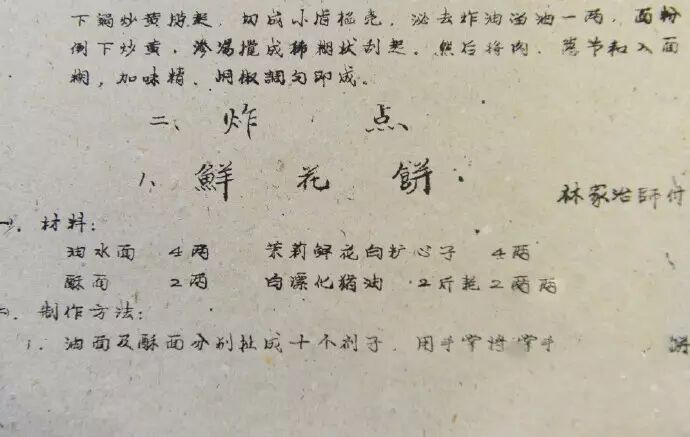 下锅炒黄捞起，切成小启，泌去炸油留油一两，面粉
倒下炒黄，渗汤搅成稀糊状刮起。然后将肉、葱节和入面
糊，加味精、胡椒調匀即成。
二、炸 点
1、鮮 花 餅．
林家治師付
一．材料：
油水面 4两 茉莉鮮花白心子 4两
酥面 2两 白漂化猪油 2斤耗2两
二．制作方法：
1．油面及酥面分别扯成十个剂子．用手掌将 餅